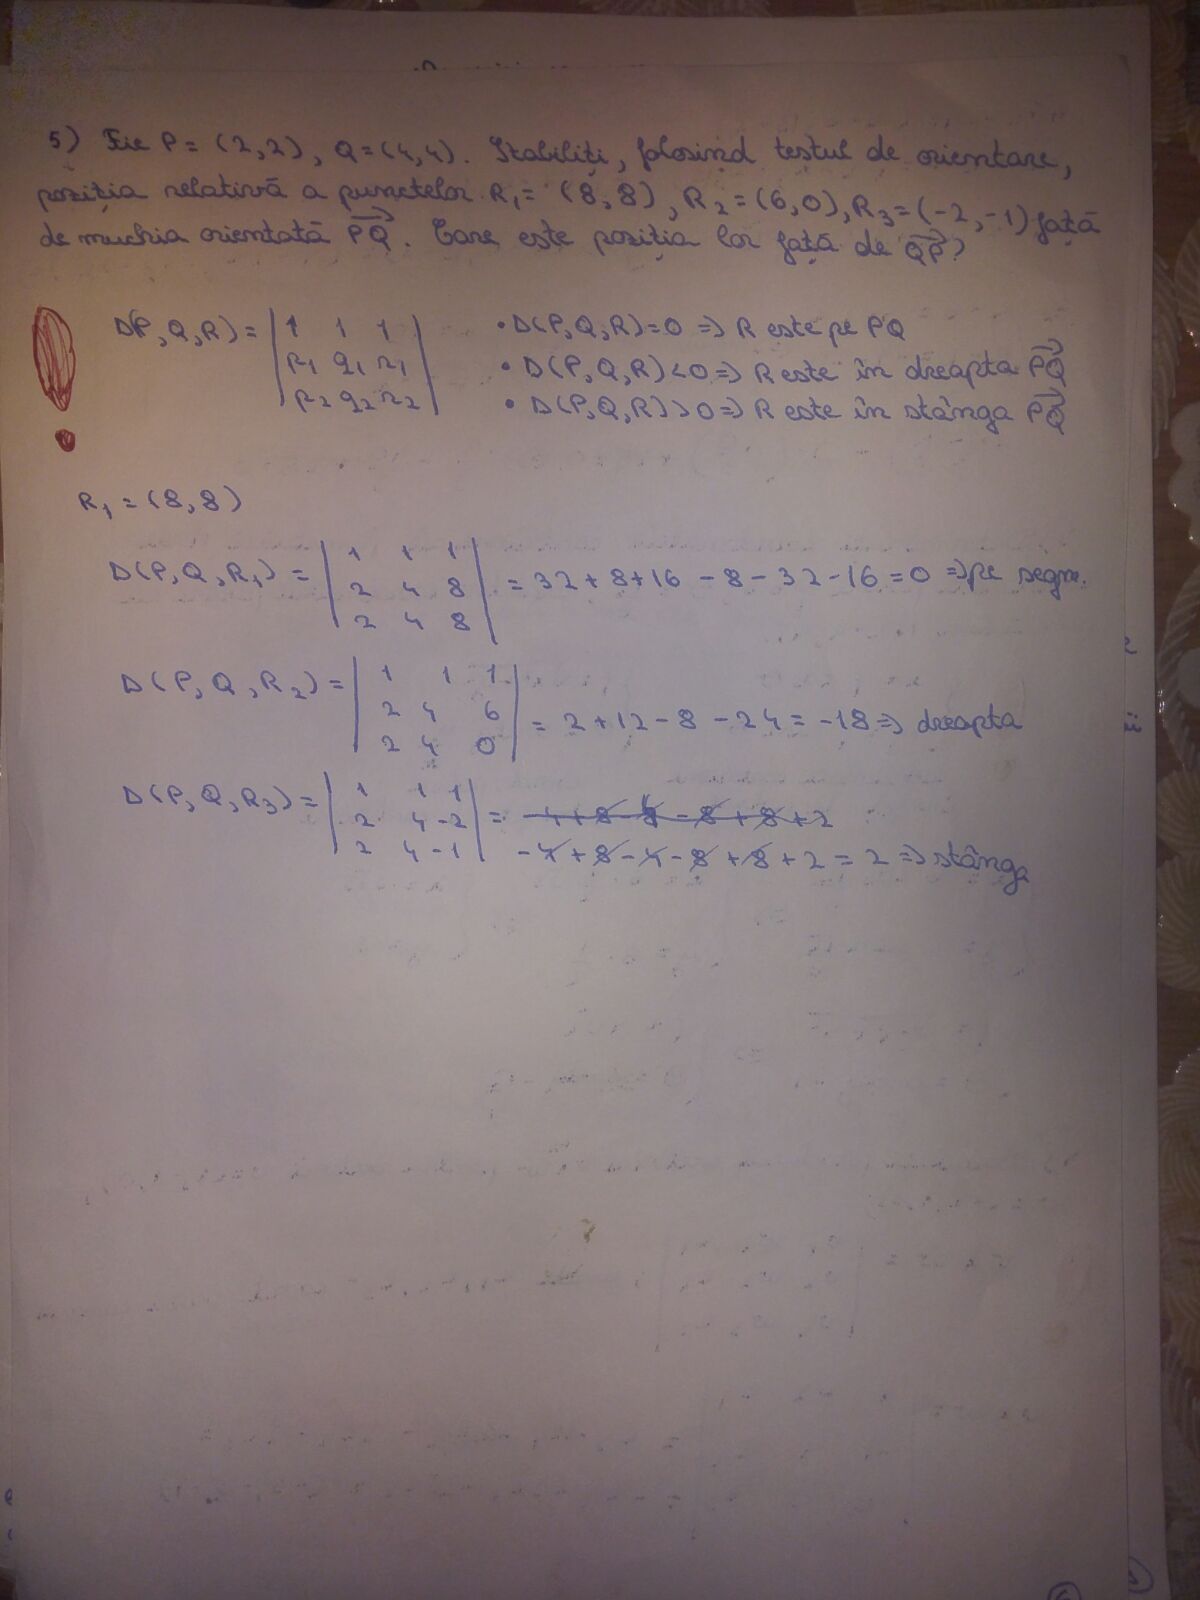 5) Fie P = (2,2), Q = (4,4). Stabiliți, folosind testul de orientare,
poziția relativă a punctelor R₁ = (8,8), R₂ = (6,0), R₃ = (-2,-1) față
de muchia orientată PQ⃗. Care este poziția lor față de QP⃗?
D(P,Q,R) = | 1 1 1 | • D(P,Q,R) = 0 => R este pe PQ
| p₁ q₁ r₁ | • D(P,Q,R) < 0 => R este în dreapta PQ⃗
| p₂ q₂ r₂ | • D(P,Q,R) > 0 => R este în stânga PQ⃗
R₁ = (8,8)
| 1 1 1 |
D(P,Q,R₁) = | 2 4 8 | = 32 + 8 + 16 - 8 - 32 - 16 = 0 => pe segm.
| 2 4 8 |
D(P,Q,R₂) = | 1 1 1 |
| 2 4 6 | = 2 + 12 - 8 - 24 = -18 => dreapta
| 2 4 0 |
D(P,Q,R₃) = | 1 1 1 |
| 2 4 -2 | = -4 + 8 - 4 - 8 + 8 + 2
| 2 4 -1 | -4 + 8 - 4 - 8 + 8 + 2 = 2 => stânga